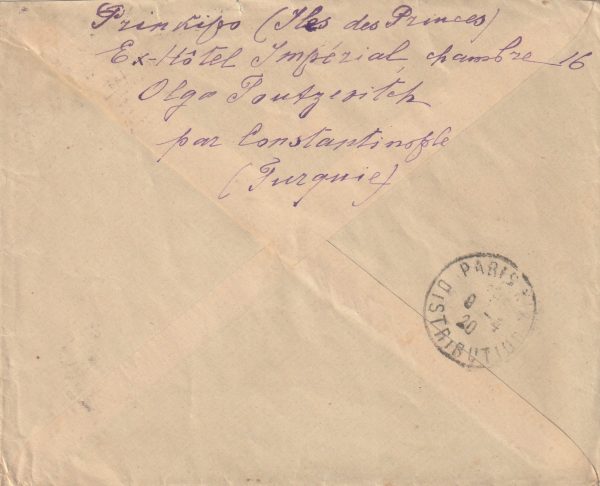 Prinkipo (Iles des Princes)
Ex-Hôtel Impérial, chambre 16
Olga Poutzevitch
par Constantinople
(Turquie)
PARIS
DISTRIBUTION
20 4